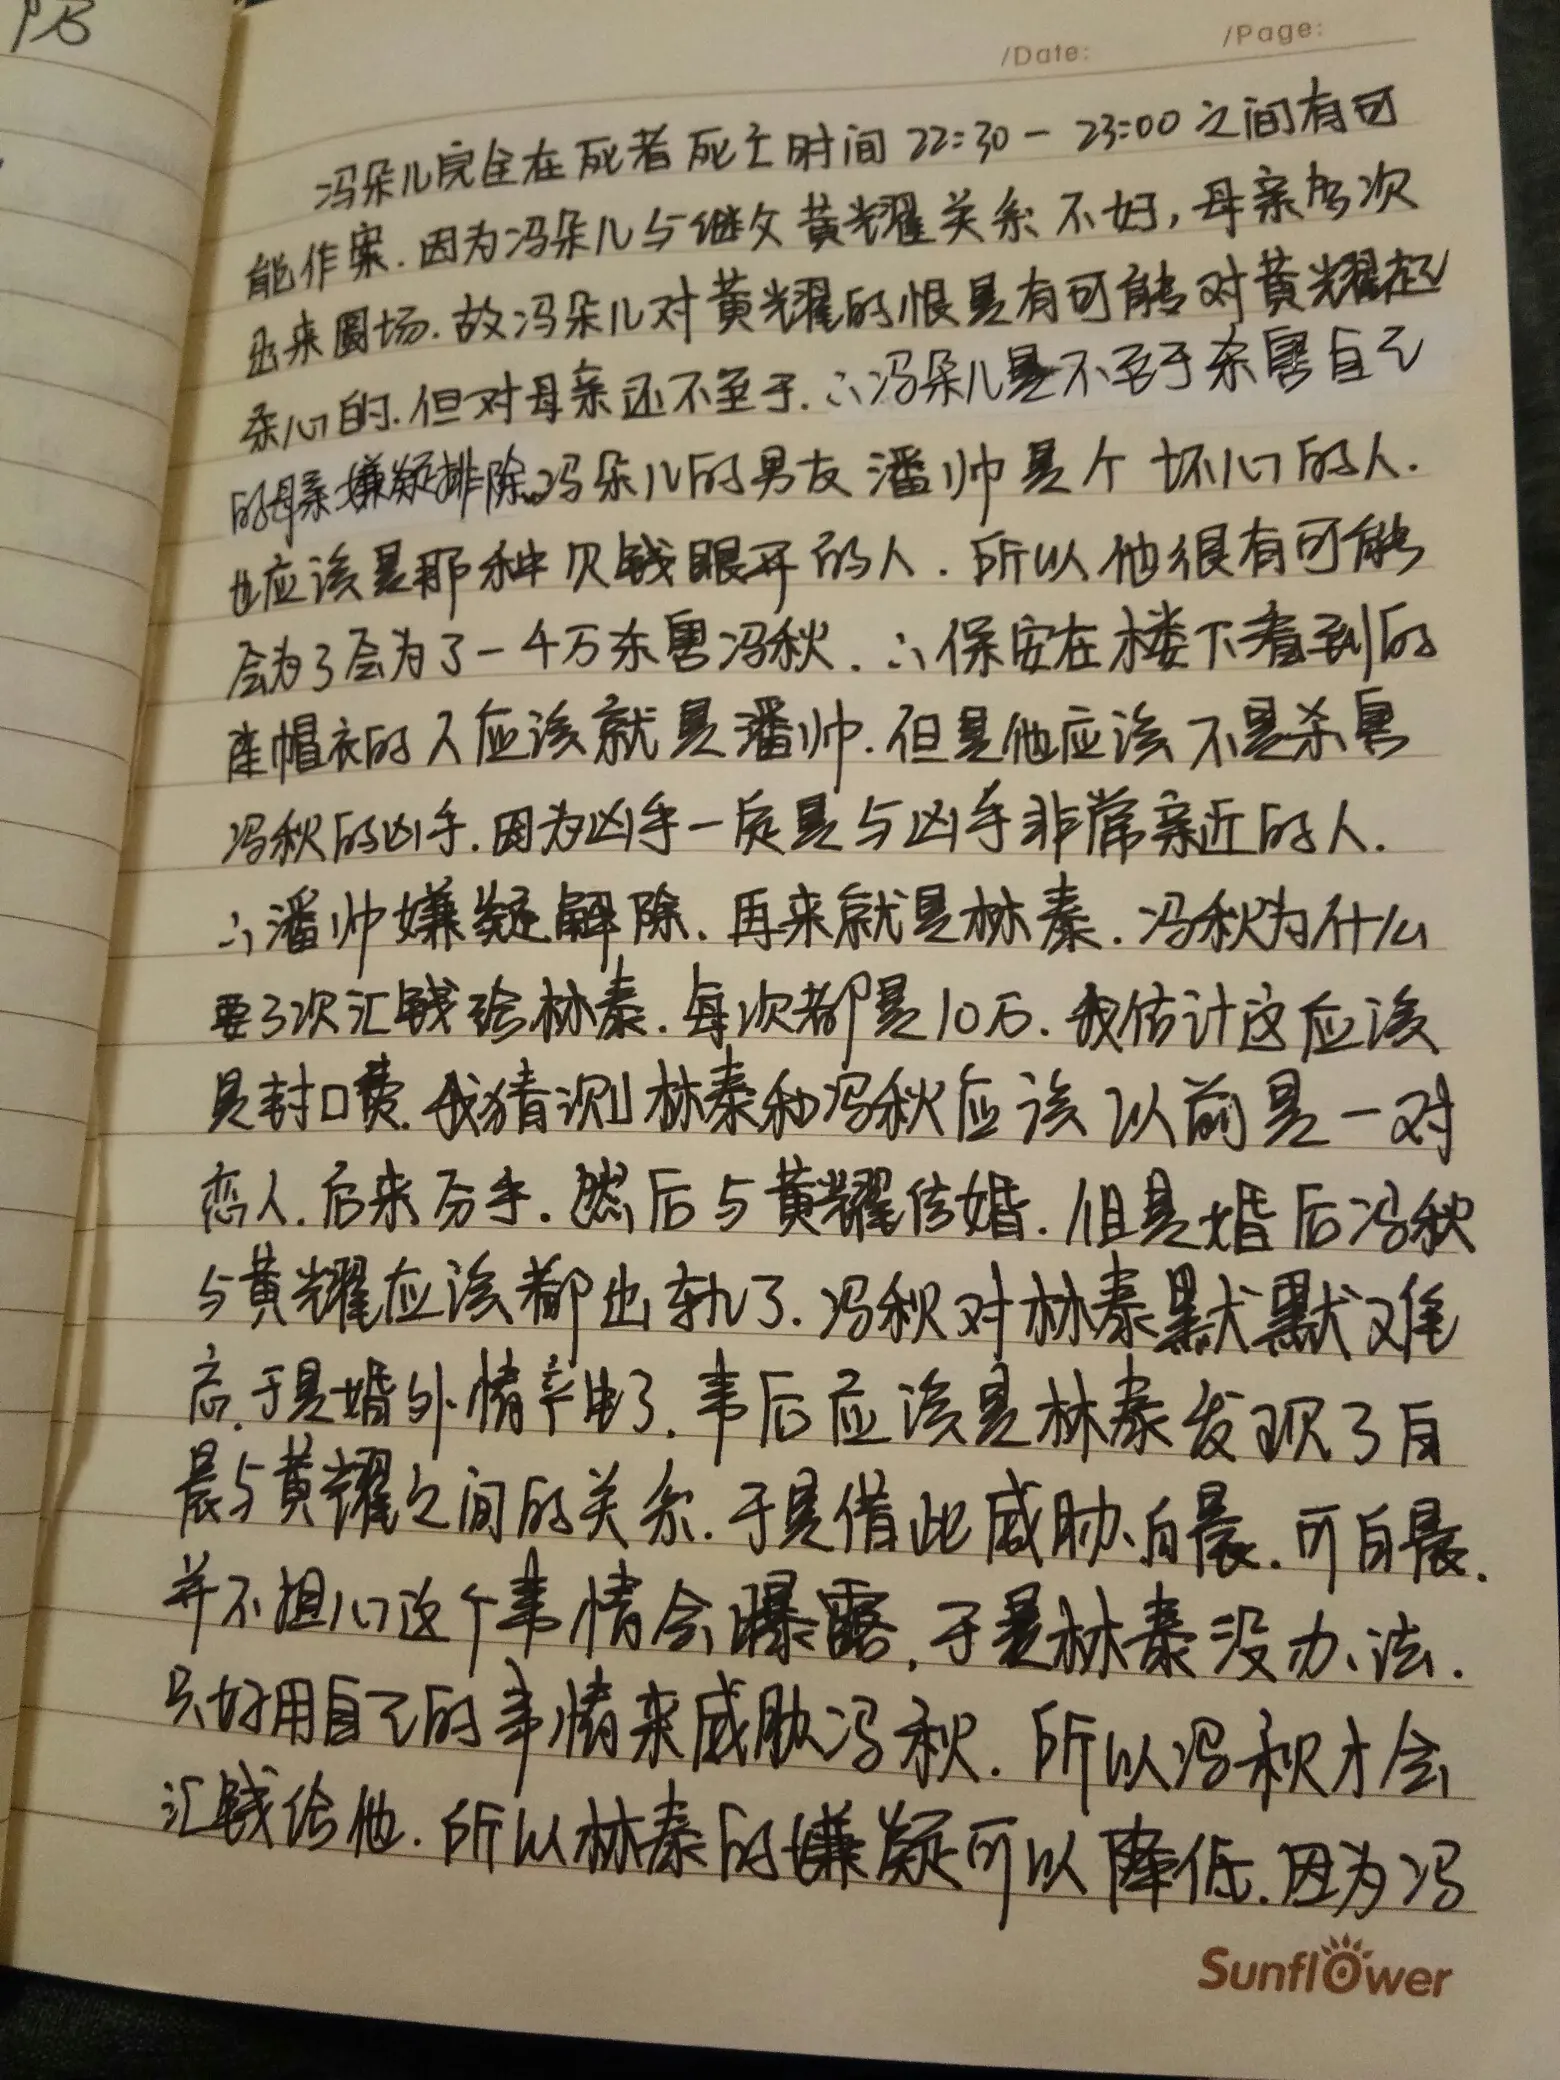 /Date: /Page:
冯朵儿完全在死者死亡时间22:30-23:00之间有可
能作案.因为冯朵儿与继父黄光耀关系不好,母亲多次
出来圆场.故冯朵儿对黄光耀的恨是有可能对黄光耀起
杀心的.但对母亲还不至于.∴冯朵儿是不至于杀害自己
的母亲.嫌疑排除.冯朵儿的男友潘帅是个坏心的人.
也应该是那种见钱眼开的人.所以他很有可能
会为了会为了一千万杀害冯秋.∴保安在楼下看到的
连帽衣的人应该就是潘帅.但是他应该不是杀害
冯秋的凶手.因为凶手一定是与凶手非常亲近的人.
∴潘帅嫌疑解除.再来就是林泰.冯秋为什么
要3次汇钱给林泰.每次都是10万.我估计这应该
是封口费.我猜测林泰和冯秋应该以前是一对
恋人.后来分手.然后与黄光耀结婚.但是婚后冯秋
与黄光耀应该都出轨了.冯秋对林泰默默难
忘.于是婚外情产生了.事后应该是林泰发现了白
晨与黄光耀之间的关系.于是借此威胁白晨.可白晨.
并不担心这个事情会曝露.于是林泰没办法.
只好用自己的事情来威胁冯秋.所以冯秋才会
汇钱给他.所以林泰的嫌疑可以降低.因为冯
Sunflower